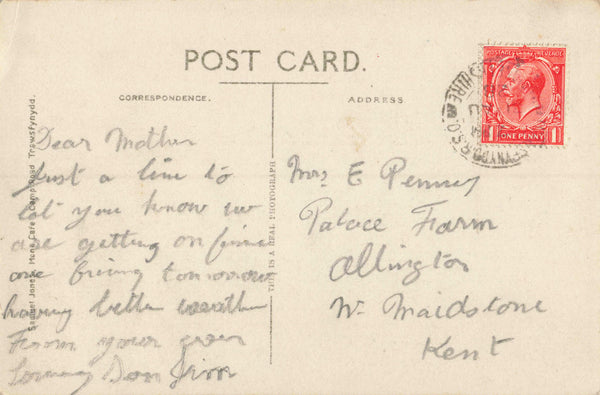 POST CARD.
CORRESPONDENCE.
ADDRESS
ONE PENNY
1 1
Dear Mother
Just a line to
let you know we
are getting on fine
are firing tomorrow
having better weather
From your ever
Loving Son Jim
Mrs E Penney
Palace Farm
Allington
Nr Maidstone
Kent
THIS IS A REAL PHOTOGRAPH
Samuel Jones, Camp Road Trawsfynydd.